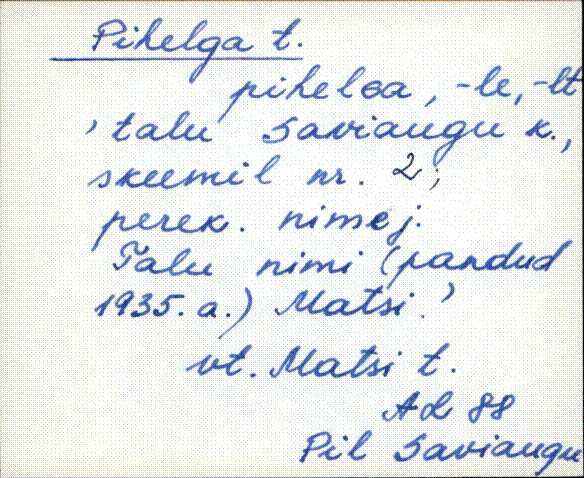 Pihelga t.
pihelGa, -le, -lt
'talu Saviaugu k.,
skeemil nr. 2;
perek. nime j.
Talu nimi (pandud
1935. a.) Matsi.'
vt. Matsi t.
AL 88
Pil Saviaugu